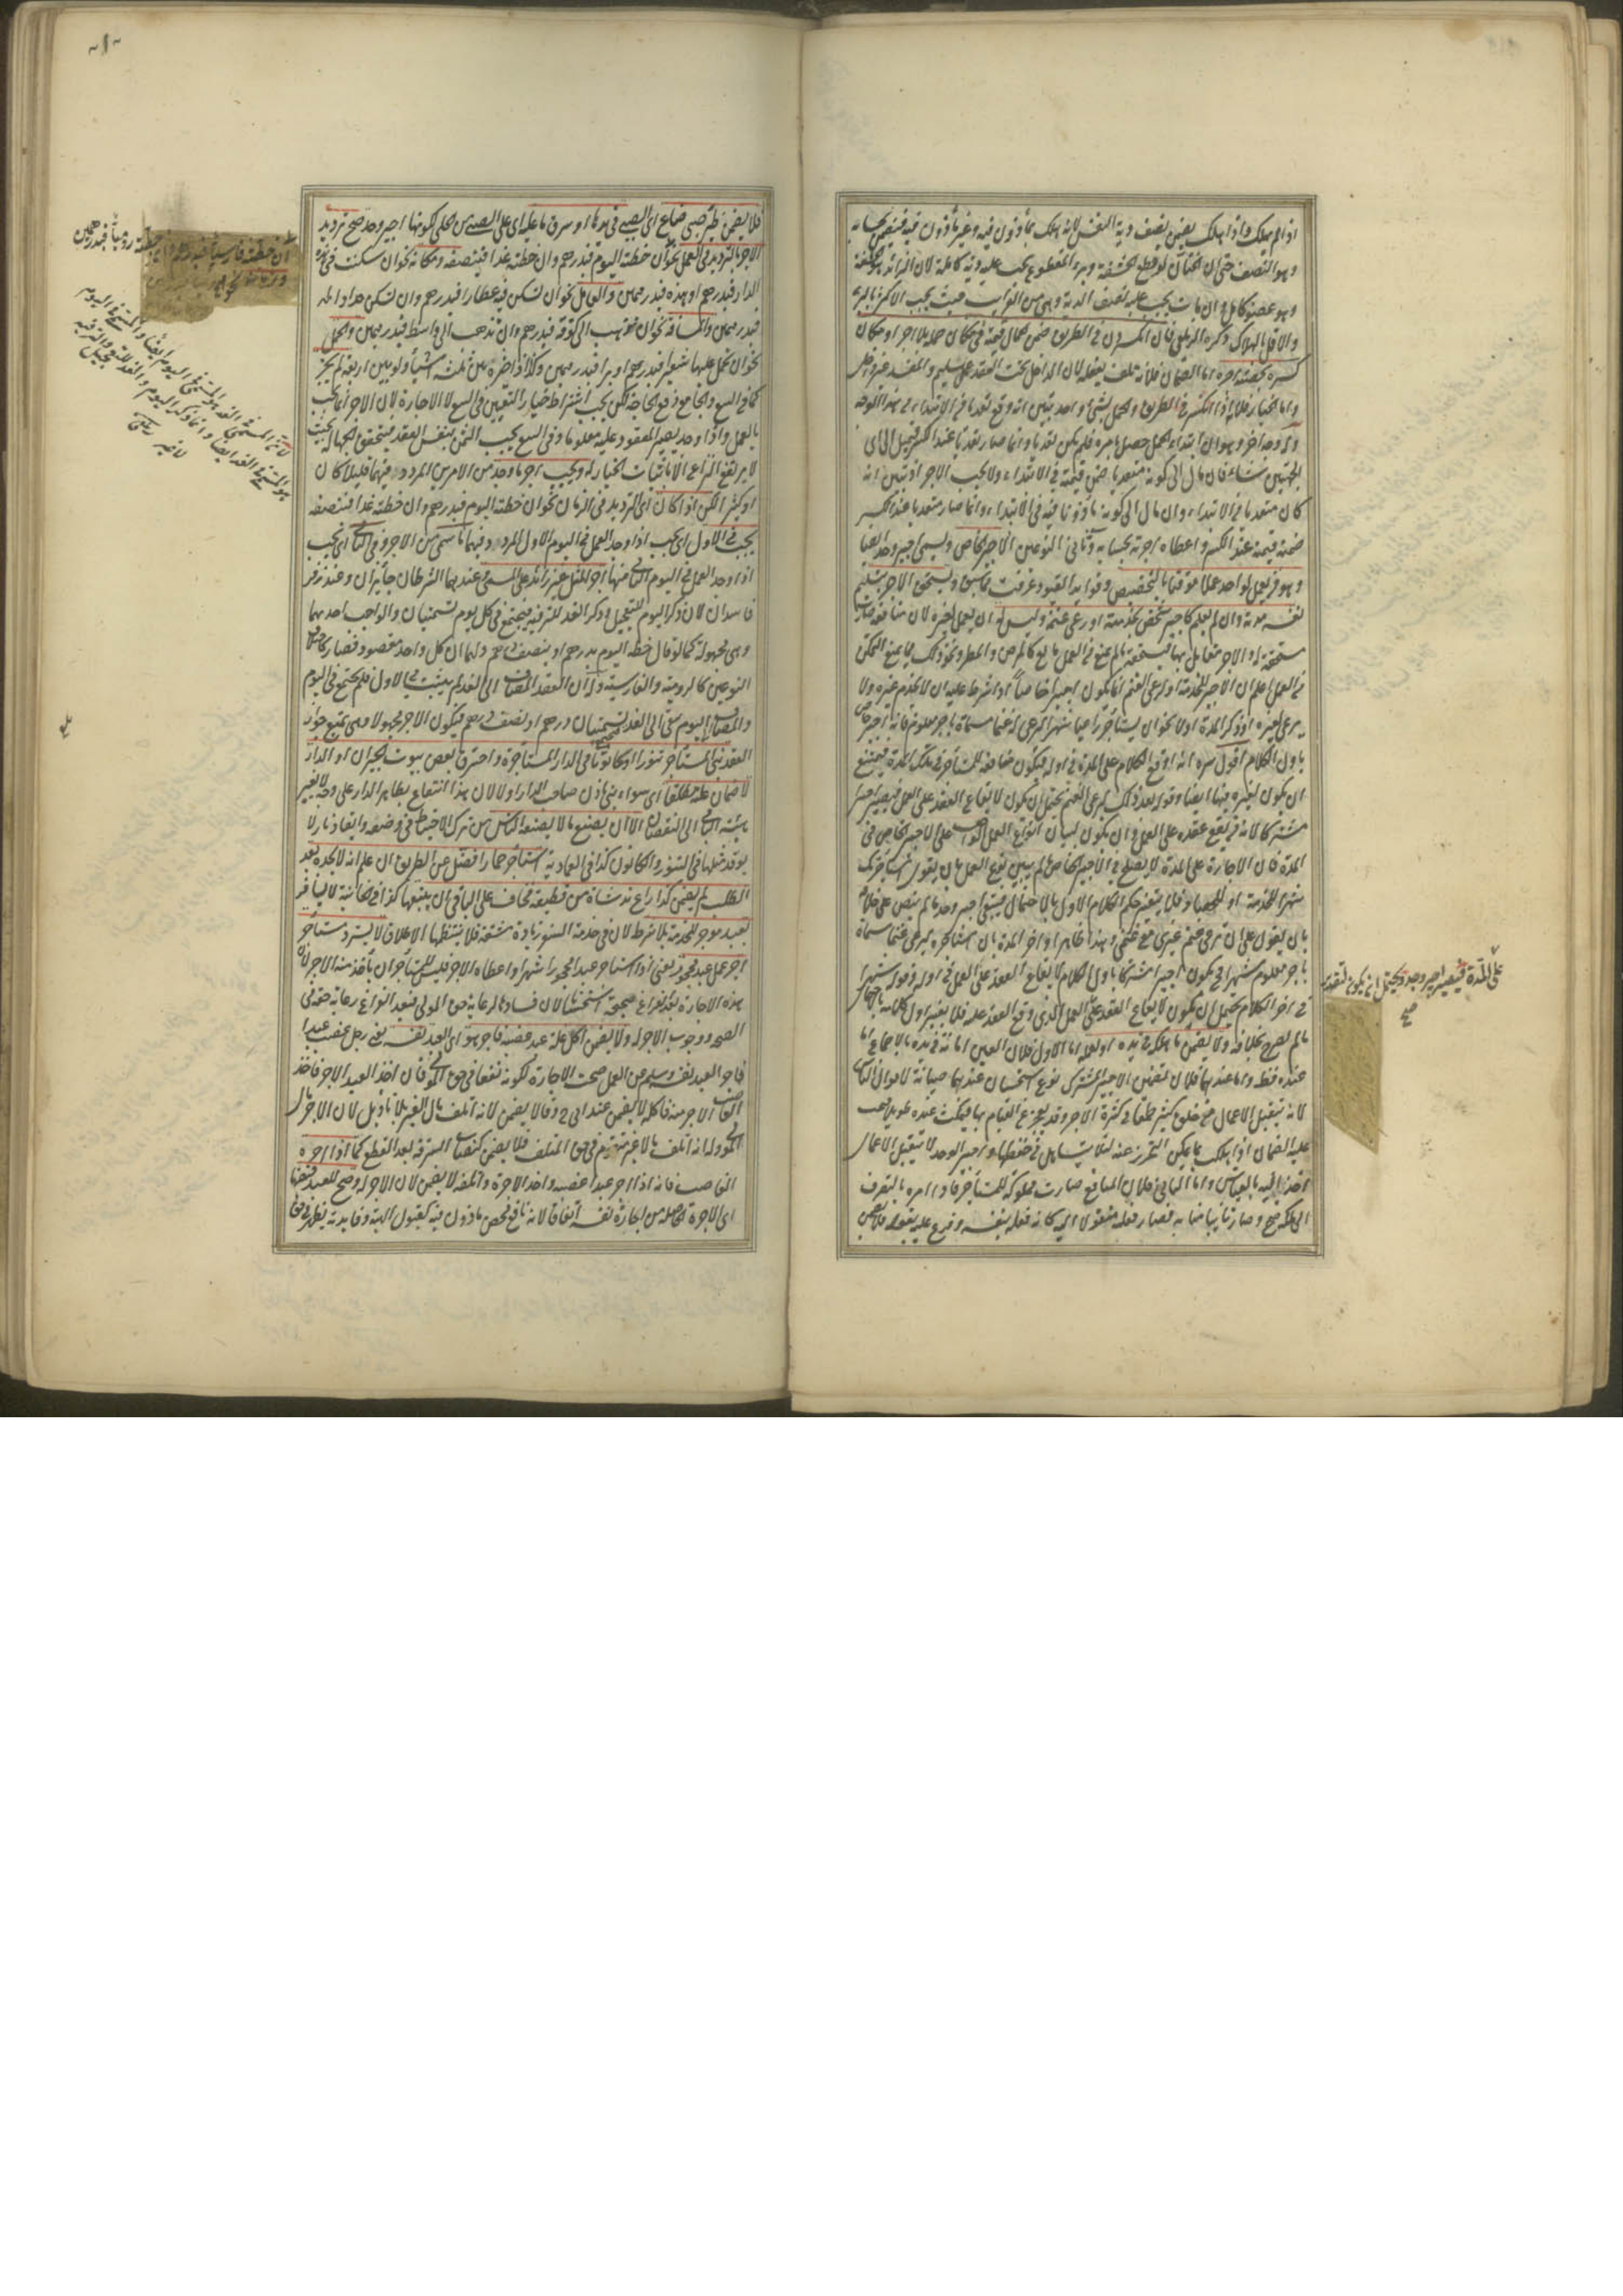 اذا لم يهلك واذا هلك يضمن نصف دية النفس لانه هلك بمأذون فيه وغير مأذون فيه فيضمن بحسابه
وهو النصف حتى ان الختان لو قطع الحشفة وبرء المقطوع يجب عليه دية كاملة لان الزائد هو الحشفة
وهو عضو كامل وان مات يجب عليه نصف الدية وهي من الغرايب حيث يجب الاكثر بالبرء
والاقل بالهلاك ذكره الزيلعي فان انكسر دن في الطريق ضمن الحمال قيمته في مكان حمله بلا اجر او مكان
كسره بحصته اجره اما الضمان فلانه تلف بفعله لان الداخل تحت العقد عمل سليم والمفسد غير داخل
واما الخيار فلانه اذا انكسر في الطريق والحمل شيء واحد تبين انه وقع تعديا في الابتداء من هذا الوجه
وله وجه اخر وهو ان ابتداء الحمل حصل بامره فلم يكن تعديا وانما صار تعديا عند الكسر فيميل الى اي
الجهتين شاء فان مال الى كونه متعديا ضمن قيمته في الابتداء ولا يجب الاجر اذ تبين انه
كان متعديا في الابتداء وان مال الى كونه مأذونا فيه في الابتداء وانما صار متعديا عند الكسر
ضمنه قيمته عند الكسر واعطاه اجرته بحسابه وثاني النوعين الاجير الخاص ويسمى اجير وحد ايضا
وهو من يعمل لواحد عملا موقتا بالتخصيص وفوايد القيود عرفت مما سبق ويستحق الاجر بتسليم
نفسه مدته وان لم يعمل كاجير شخص لخدمته او رعي غنمه وليس له ان يعمل لغيره لان منافعه صارت
مستحقة له والاجر مقابل بها فيستحقه ما لم يمنع من العمل مانع كالمرض والمطر ونحو ذلك مما يمنع التمكن
من العمل اعلم ان الاجير للخدمة او لرعي الغنم انما يكون اجيرا خاصا اذا شرط عليه ان لا يخدم غيره ولا
يرعى لغيره او ذكر المدة اولا نحو ان يستأجر راعيا شهرا ليرعى له غنما مسماة باجر معلوم فانه اجير خاص
باول الكلام اقول سره انه اوقع الكلام على المدة في اوله فيكون منافعه للمستأجر في تلك المدة فيمتنع
ان يكون لغيره فيها ايضا وقوله بعد ذلك ليرعى الغنم يحتمل ان يكون لايقاع العقد على العمل فيصير اجيرا
مشتركا لانه من يقع عقده على العمل وان يكون لبيان نوع العمل الواجب على الاجير الخاص في
المدة فان الاجارة على المدة لا يصح في الاجير الخاص ما لم يبين نوع العمل بان يقول استأجرتك
شهرا للخدمة او للحصاد فلا يتغير حكم الكلام الاول بالاحتمال فيبقى اجير وحد ما لم ينص على خلافه
بان يقول على ان ترعى غنم غيري مع غنمي وهذا ظاهر او اخر المدة بان استأجره ليرعى غنما مسماة
باجر معلوم شهرا فحينئذ يكون اجيرا مشتركا باول الكلام لايقاع العقد على العمل في اوله وقوله شهرا
في اخر الكلام يحتمل ان يكون لايقاع العقد على العمل الذي وقع العقد عليه فلا يتغير اول كلامه بالاحتمال
ما لم يصرح بخلافه ولا يضمن ما هلك في يده او بعمله اما الاول فلان العين امانة في يده بالاجماع اما
عنده فقط واما عندهما فلان تضمين الاجير المشترك نوع استحسان عندهما صيانة لاموال الناس
لانه يتقبل الاعمال من خلق كثير طمعا في كثرة الاجر وقد يعجز عن القيام بها فيمكث عنده طويلا فيجب
عليه الضمان اذا هلك مما يمكن التحرز عنه لئلا يتساهل في حفظها واجير الوحد لا يتقبل الاعمال
اخذا فيه بالقياس واما الثاني فلان المنافع صارت مملوكة للمستأجر فاذا امره بالتصرف
الى ملكه صح وصار نائبا منابه فصار فعله منقولا اليه كانه فعله بنفسه وفرع عليه بقوله فلا يضمن
على المدة فيصير اجير وحد ويحتمل ان يكون لتقدير
صح
فلا يضمن ظئر صبي ضاع اي الصبي في يدها او سرق ما عليه اي على الصبي من الحلي لكونها اجير وحد صح ترديد
الاجر بالترديد في العمل نحو ان خطته اليوم فبدرهم وان خطته غدا فبنصفه ومكانه نحو ان سكنت في هذه
الدار فبدرهم او هذه فبدرهمين والعامل نحو ان تسكن فيه عطارا فبدرهم وان تسكن حدادا
فبدرهمين والمسافة نحو ان تذهب الى كوفة فبدرهم وان تذهب الى واسط فبدرهمين والحمل
نحو ان تحمل عليها شعيرا فبدرهم او برا فبدرهمين وكذا اذا خيره بين ثلثة اشياء ولو بين اربعة لم يجز
كما في البيع والجامع دفع الحاجة لكن يجب اشتراط خيار التعيين في البيع لا الاجارة لان الاجر انما يجب
بالعمل واذا وجد يصير المعقود عليه معلوما وفي البيع يجب الثمن بنفس العقد فيتحقق الجهالة بحيث
لا يرتفع النزاع الا باثبات الخيار له ويجب اجر ما وجد من الامرين المردد فيهما قليلا كان
او كثيرا لكن اذا كان اي الترديد في الزمان نحو ان خطته اليوم فبدرهم وان خطته غدا فبنصفه
يجب في الاول اي يجب اذا وجد العمل في اليوم الاول المردد فيهما ما سمى من الاجر وفي الثاني اي يجب
اذا وجد العمل في اليوم الثاني منهما اجر المثل غير زائد على المسمى عندهما الشرطان جائزان وعند زفر
فاسدان لان ذكر اليوم للتعجيل وذكر الغد للترفيه فيجتمع في كل يوم تسميتان والواجب احدهما
وهي مجهولة كما لو قال خطه اليوم بدرهم او بنصف درهم ولهما ان كل واحد مقصود فصار كاختلاف
النوعين كالرومية والفارسية وله ان العقد المضاف الى الغد لم يثبت في الاول فلم يجتمع في اليوم
والمضاف الى اليوم يبقى الى الغد فتجتمع تسميتان درهم او نصف درهم فيكون الاجر مجهولا وهي تمنع جواز
العقد بنى المستأجر تنورا او كانونا في الدار المستأجرة واحترق بعض بيوت الجيران او الدار
لا ضمان عليه مطلقا اي سواء بنى باذن صاحب الدار او لا لان هذا انتفاع بظاهر الدار على وجه لا يغير
هيئة الباقي الى النقصان الا ان يصنع ما لا يصنعه الناس من ترك الاحتياط في وضعه وايقاد نار لا
يوقد مثلها في التنور والكانون كذا في العمادية استأجر حمارا فضل عن الطريق ان علم انه لا يجده بعد
الطلب لم يضمن كذا راع ند شاة من قطيعه فخاف على الباقي ان يتبعها كذا في الخانية لا يسافر
بعبد موجر للخدمة بلا شرط لان في خدمة السفر زيادة مشقة فلا ينتظمها الاطلاق لا يسترد مستأجر
اجر عمل عبد محجور يعني اذا استأجر عبدا محجورا شهرا واعطاه الاجر فليس للمستأجر ان يأخذ منه الاجر لان
هذه الاجارة بعد الفراغ صحيحة استحسانا لان فسادها لرعاية حق المولى فبعد الفراغ رعاية حقه في
الصحة ووجوب الاجر له ولا يضمن اكل غلة عبد غصبه فاجر هو اي العبد نفسه يعني رجل غصب عبدا
فاجر العبد نفسه وسلم عن العمل صحت الاجارة لكونه نفعا في حق المولى فان اخذ العبد الاجر فاخذ
الغاصب الاجر منه فاكله لا يضمن عند ابي ح وقالا يضمن لانه اتلف مال الغير بلا تأويل لان الاجر مال
المولى وله انه اتلف مالا غير متقوم في حق المتلف فلا يضمن كنصاب السرقة بعد القطع كما اذا اجره
الغاصب فانه اذا اجر عبدا غصبه واخذ الاجرة واتلفه لا يضمن لان الاجر له وصح للعبد قبضها
اي الاجرة الحاصلة من ايجاره نفسه اتفاقا لانه نافع محض مأذون فيه كقبول الهبة وفايدته يظهر في حق